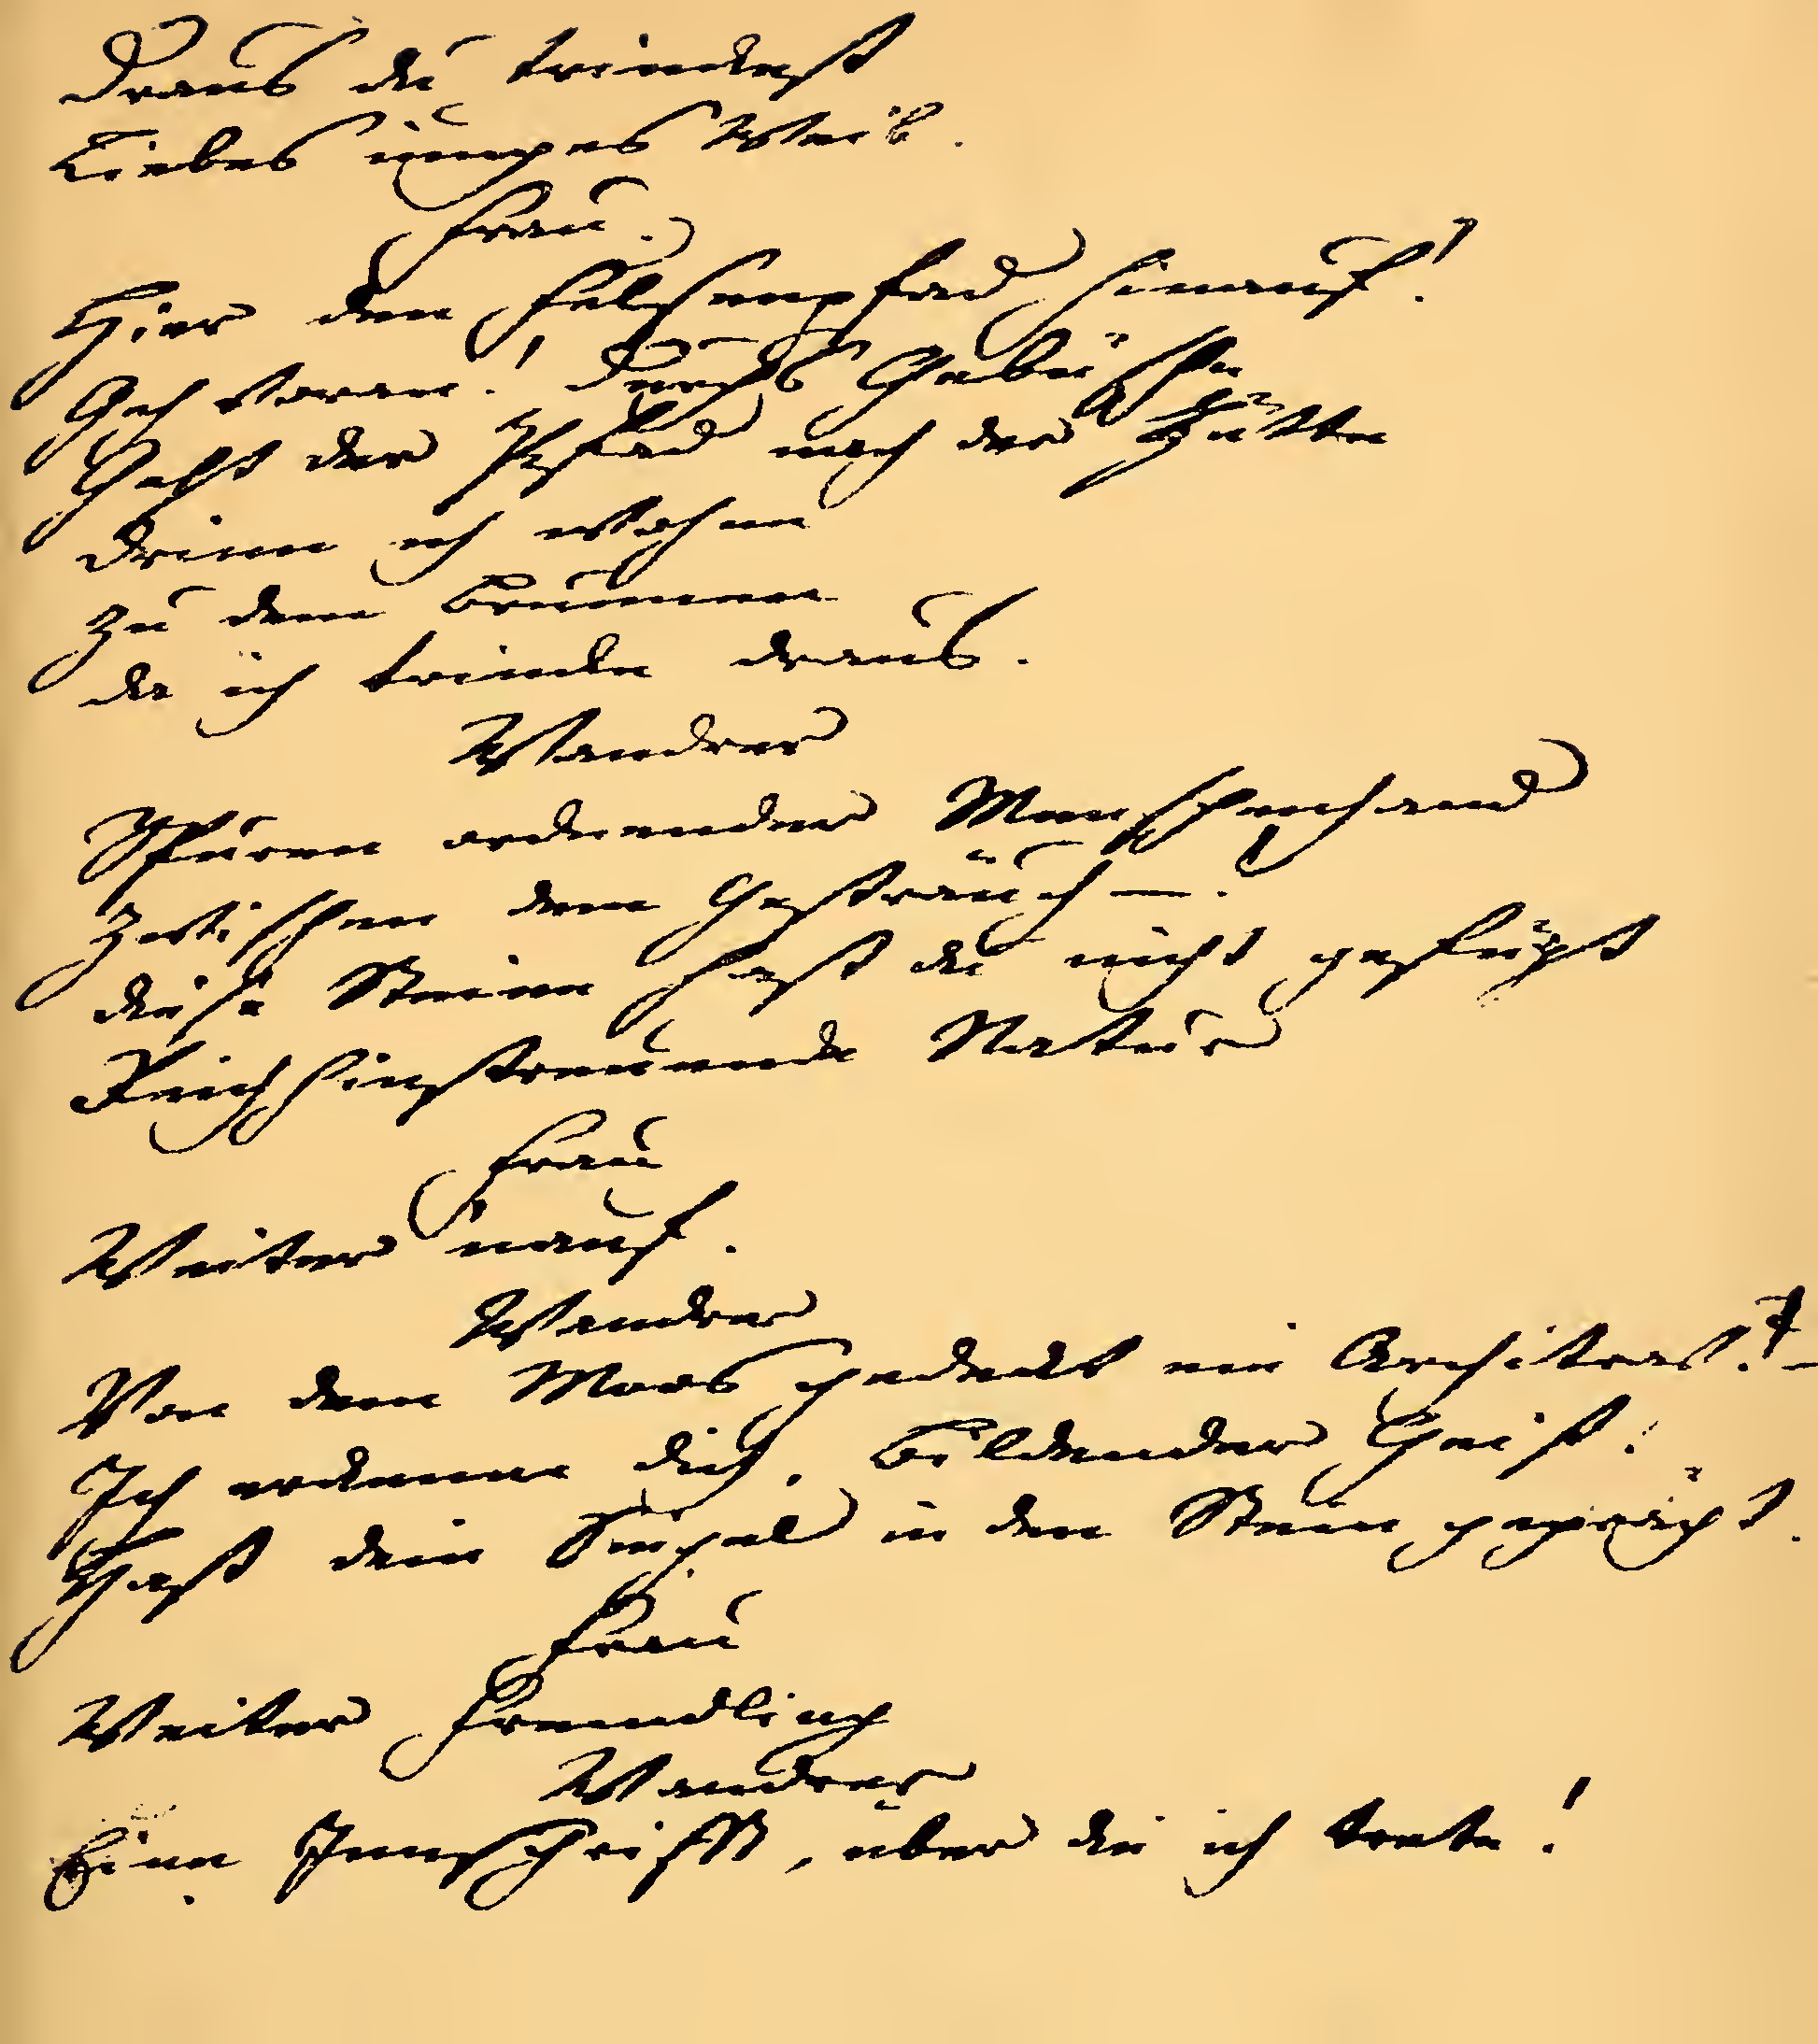 Draus du trinckest
Liebes iunges Weib.
Frau.
Hier den Felsenpfad hinauf!
Geh voran! Durchs Gebüsche
Geht der Pfad nach der Hütte
Drinn ich wohne
Zu dem Brunnen
da ich trincke draus.
Wandrer
Spuren ordnender Menschenhand
Zwischen dem Gesträuch —!
diese Steine hast du nicht gefügt
Reich hinstreuende Natur
Frau
Weiter 'nauf.
Wandrer
Von dem Moos gedeckt ein Architrav! —
Ich erckenne dich, bildender Geist!
Hast dein Siegel in den Stein geprägt.
Frau
Weiter Fremdling
Wandrer
Eine Innschrifft, über die ich trete!